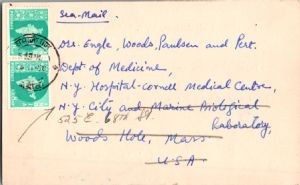 Sea-Mail.
Drs. Engle, Woods, Paulsen and Pert.
Dept of Medicine,
N.Y. Hospital-Cornell Medical Centre,
N.Y. City and Marine Biological
Laboratory,
525 E. 68th St
Woods Hole, Mass
U S A